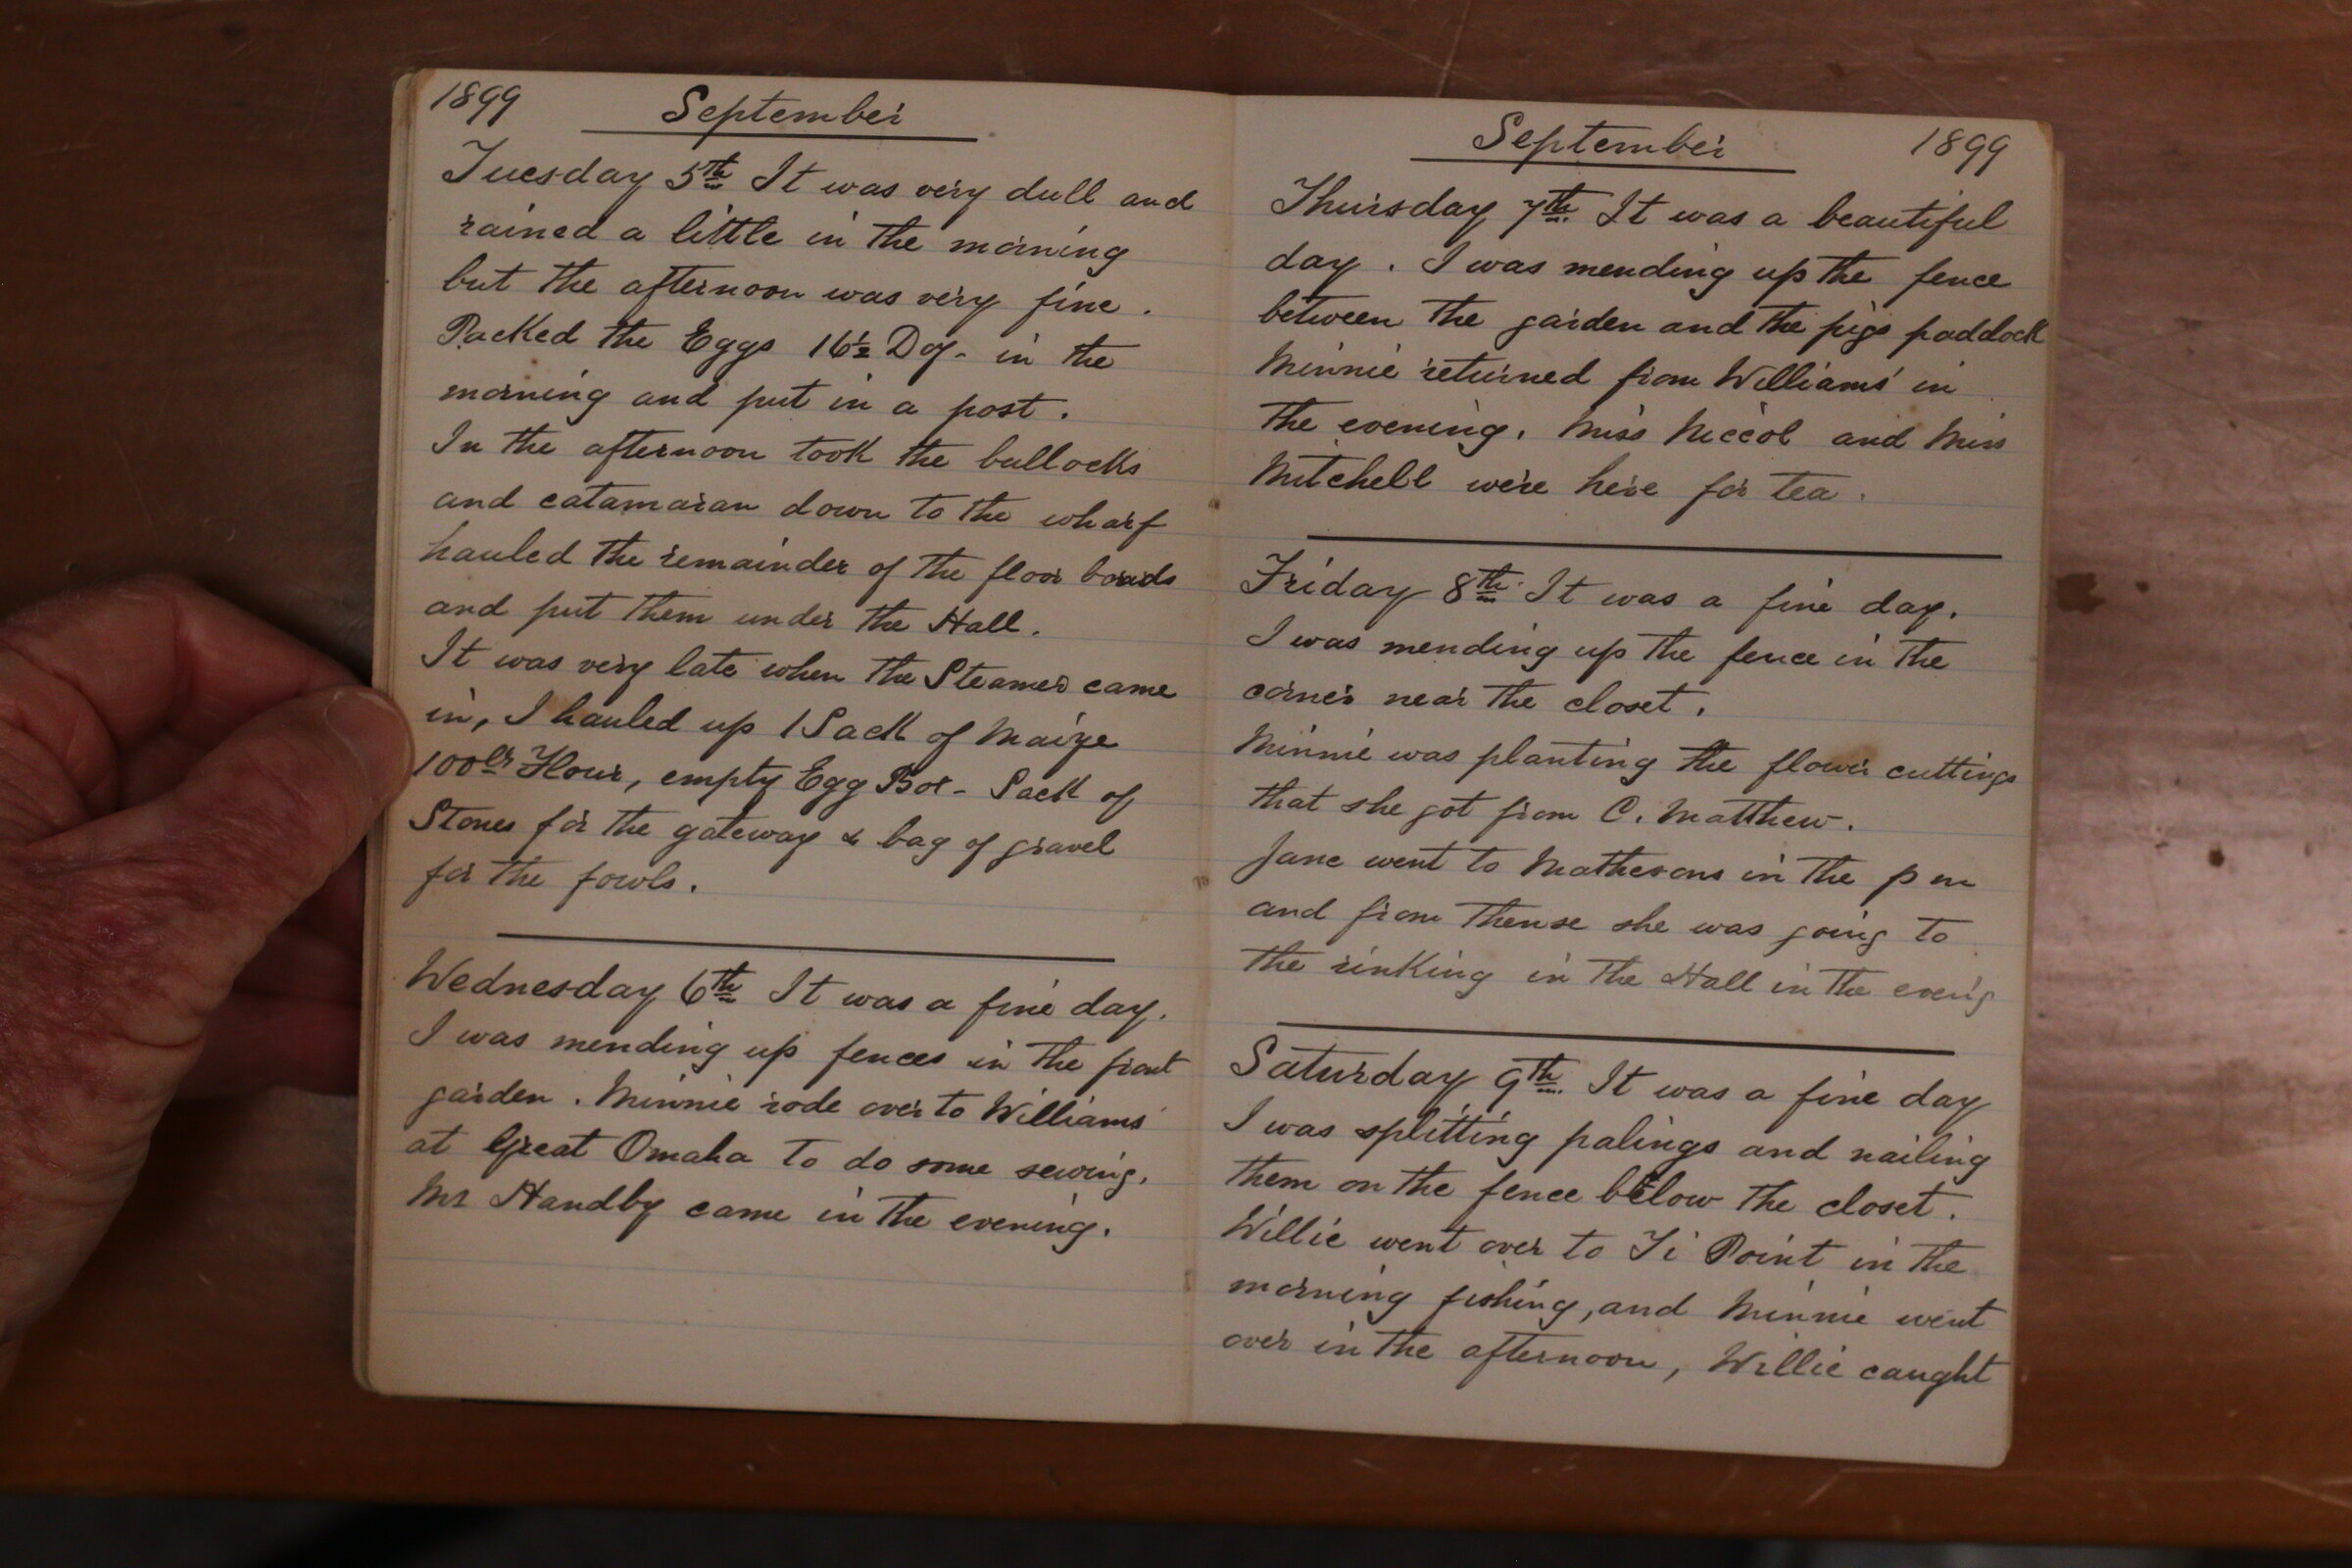 1899 September
Tuesday 5th It was very dull and
rained a little in the morning
but the afternoon was very fine.
Packed the Eggs 16½ Doz- in the
morning and put in a post.
In the afternoon took the bullocks
and catamaran down to the wharf
hauled the remainder of the floor boards
and put them under the Hall.
It was very late when the Steamer came
in, I hauled up 1 Sack of Maize
100lb Flour, empty Egg Box - Sack of
Stones for the gateway & bag of gravel
for the fowls.
Wednesday 6th It was a fine day.
I was mending up fences in the front
garden. Minnie rode over to Williams'
at Great Omaha to do some sewing.
Mr Handby came in the evening.
September 1899
Thursday 7th It was a beautiful
day. I was mending up the fence
between the garden and the pigs paddock
Minnie returned from Williams' in
the evening. Miss Niccol and Miss
Mitchell were here for tea.
Friday 8th It was a fine day.
I was mending up the fence in the
corner near the closet.
Minnie was planting the flower cuttings
that she got from C. Matthew.
Jane went to Mathesons in the pm
and from thense she was going to
the rinking in the Hall in the evenig
Saturday 9th It was a fine day
I was splitting palings and nailing
them on the fence below the closet.
Willie went over to Ti Point in the
morning fishing, and Minnie went
over in the afternoon, Willie caught